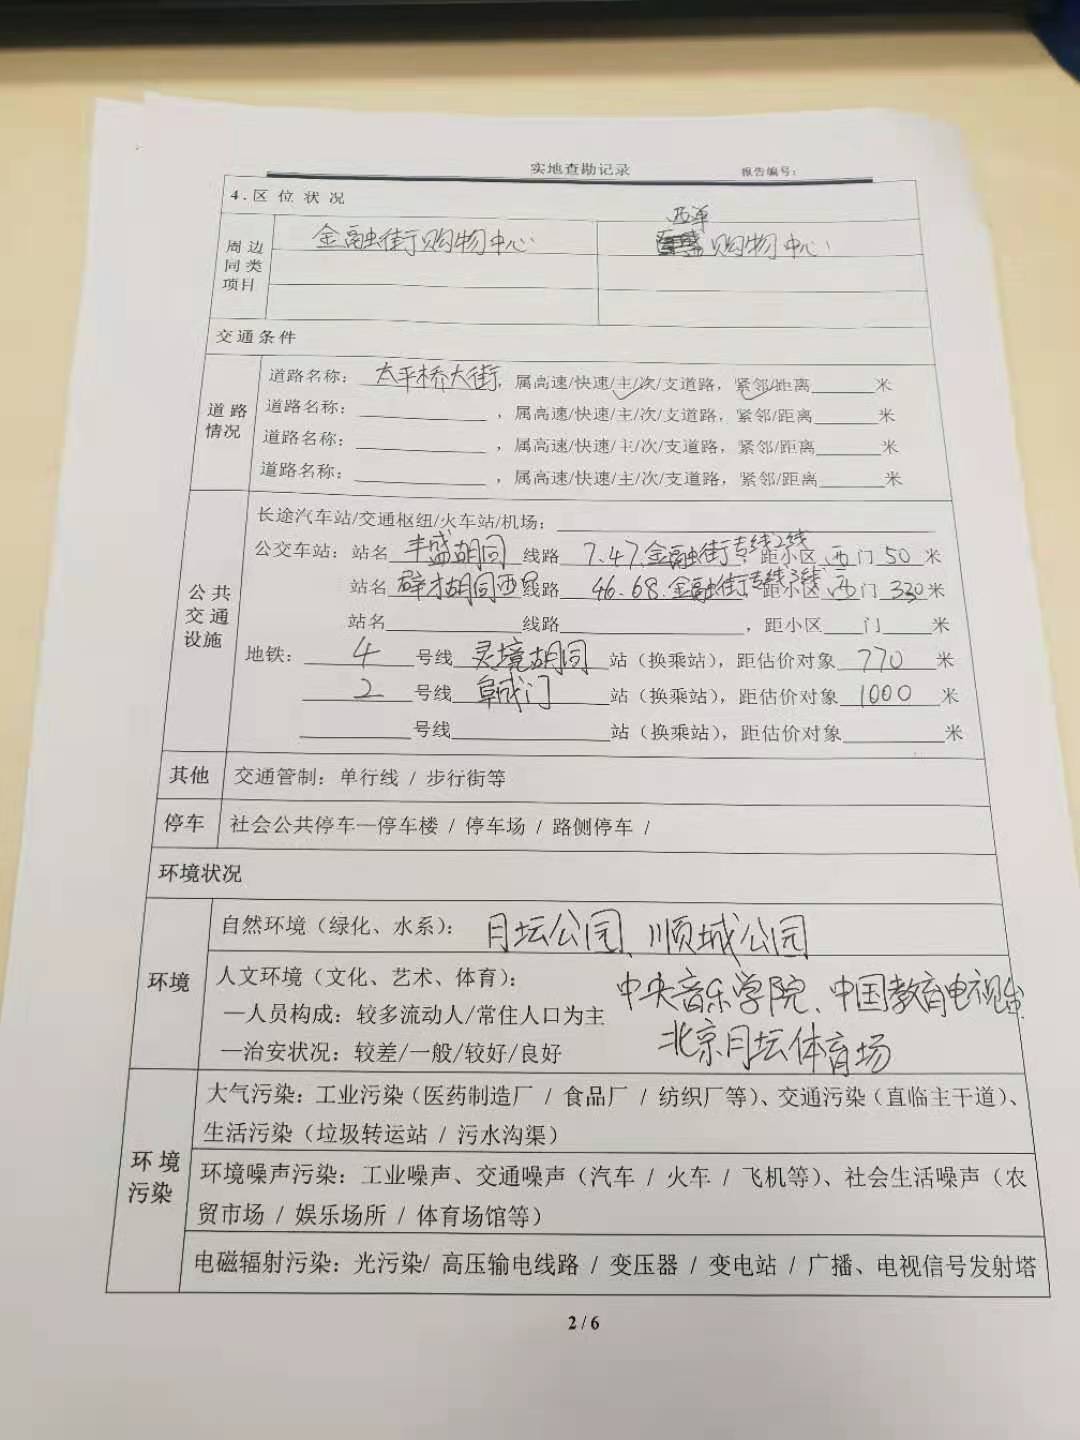 实地查勘记录 报告编号：
4.区位状况
周边同类项目 金融街购物中心 西单购物中心
交通条件
道路情况
道路名称：太平桥大街，属高速/快速/主/次/支道路，紧邻/距离______米
道路名称：____________，属高速/快速/主/次/支道路，紧邻/距离______米
道路名称：____________，属高速/快速/主/次/支道路，紧邻/距离______米
道路名称：____________，属高速/快速/主/次/支道路，紧邻/距离______米
公共交通设施
长途汽车站/交通枢纽/火车站/机场：____________
公交车站：站名 丰盛胡同 线路 7.47.金融街专线2线，距小区 西 门 50 米
站名 辟才胡同西口 线路 46.68.金融街专线3线，距小区 西 门 330 米
站名____________线路____________，距小区____门____米
地铁： 4 号线 灵境胡同 站（换乘站），距估价对象 770 米
2 号线 阜成门 站（换乘站），距估价对象 1000 米
______号线____________站（换乘站），距估价对象______米
其他 交通管制：单行线 / 步行街等
停车 社会公共停车—停车楼 / 停车场 / 路侧停车 /
环境状况
环境
自然环境（绿化、水系）：月坛公园、顺城公园
人文环境（文化、艺术、体育）：中央音乐学院、中国教育电视台
—人员构成：较多流动人/常住人口为主 北京月坛体育场
—治安状况：较差/一般/较好/良好
环境污染
大气污染：工业污染（医药制造厂 / 食品厂 / 纺织厂等）、交通污染（直临主干道）、
生活污染（垃圾转运站 / 污水沟渠）
环境噪声污染：工业噪声、交通噪声（汽车 / 火车 / 飞机等）、社会生活噪声（农
贸市场 / 娱乐场所 / 体育场馆等）
电磁辐射污染：光污染/ 高压输电线路 / 变压器 / 变电站 / 广播、电视信号发射塔
2 / 6